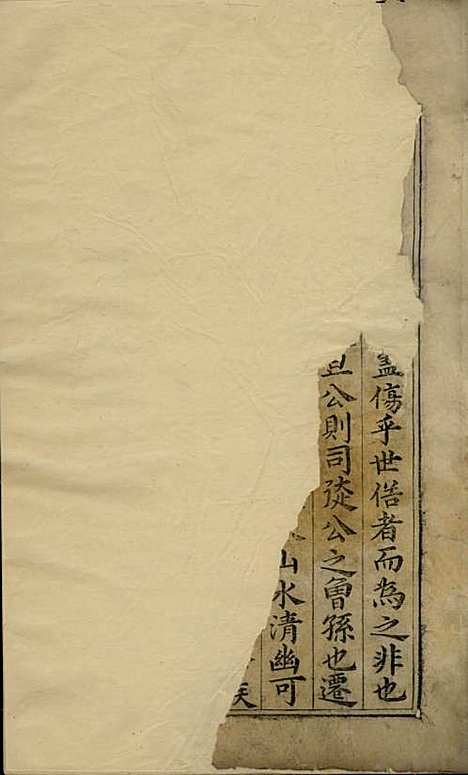 盖傷乎世俗者而為之非也
公則司徒公之曾孫也遷
山水清幽可
矣